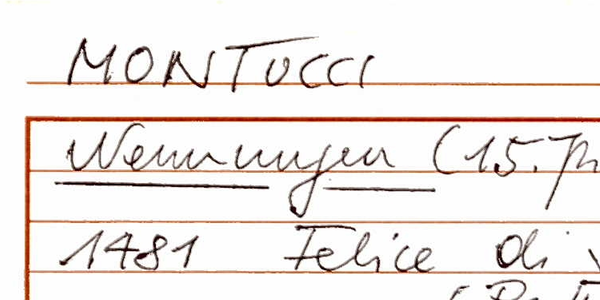 MONTUCCI
Nennungen (15.Jh
1481 Felice di